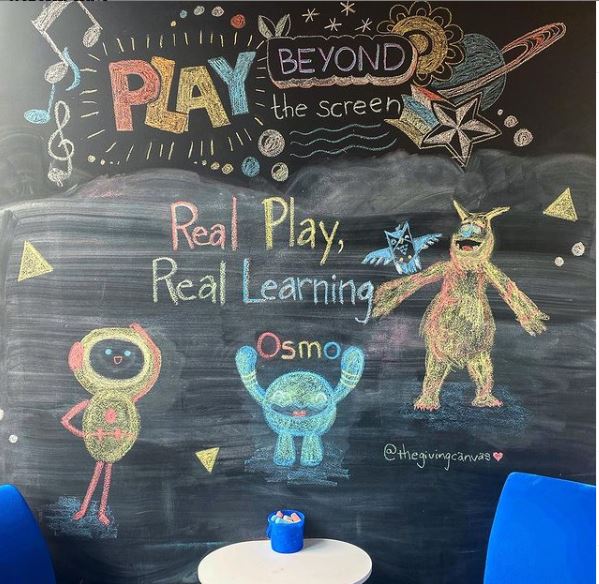 PLAY
BEYOND
the screen
Real Play,
Real Learning
Osmo
@thegivingcanvas